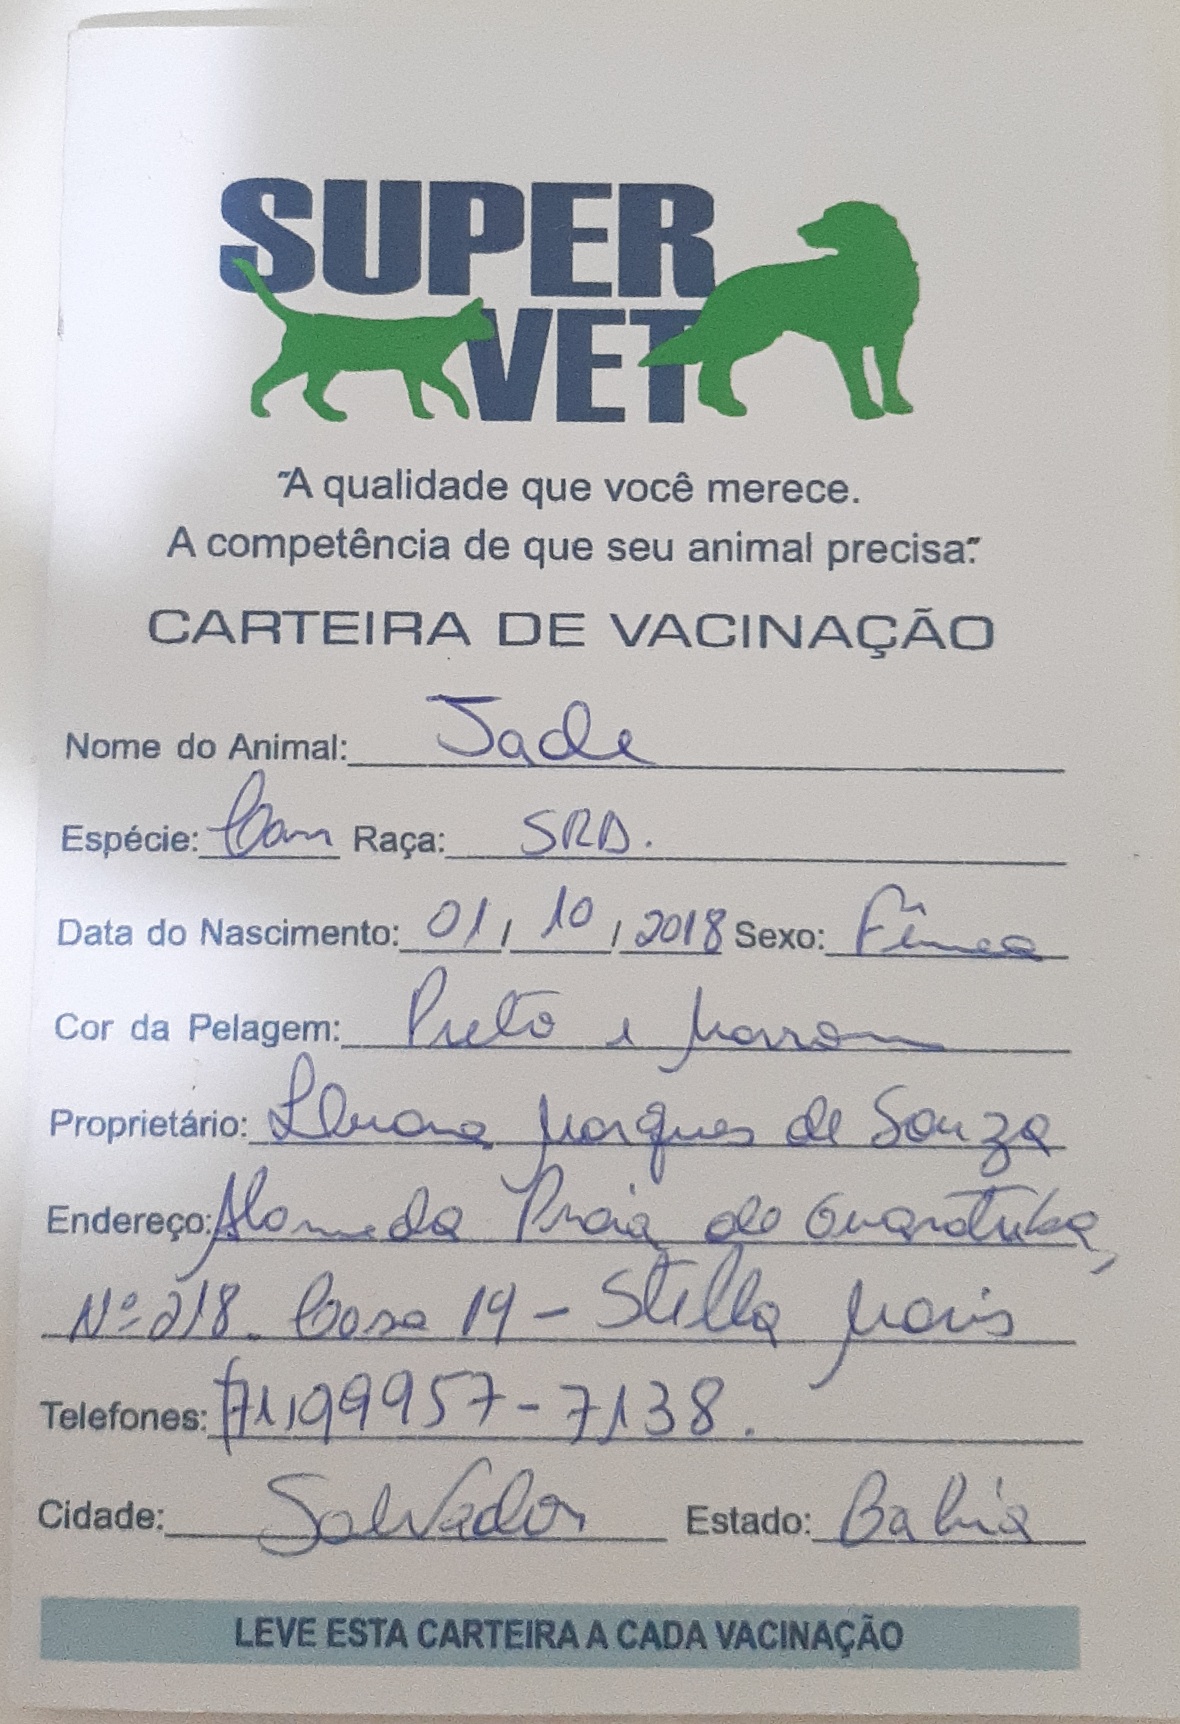 SUPER
VET
"A qualidade que você merece.
A competência de que seu animal precisa."
CARTEIRA DE VACINAÇÃO
Nome do Animal: Jade
Espécie: Can Raça: SRD.
Data do Nascimento: 01/10/2018 Sexo: Fêmea
Cor da Pelagem: Preto e Marrom
Proprietário: Marques de Souza
Endereço: Alameda Praia de Guaratuba,
Nº 218. Casa 19 - Stella Maris
Telefones: (71) 99957-7138.
Cidade: Salvador Estado: Bahia
LEVE ESTA CARTEIRA A CADA VACINAÇÃO